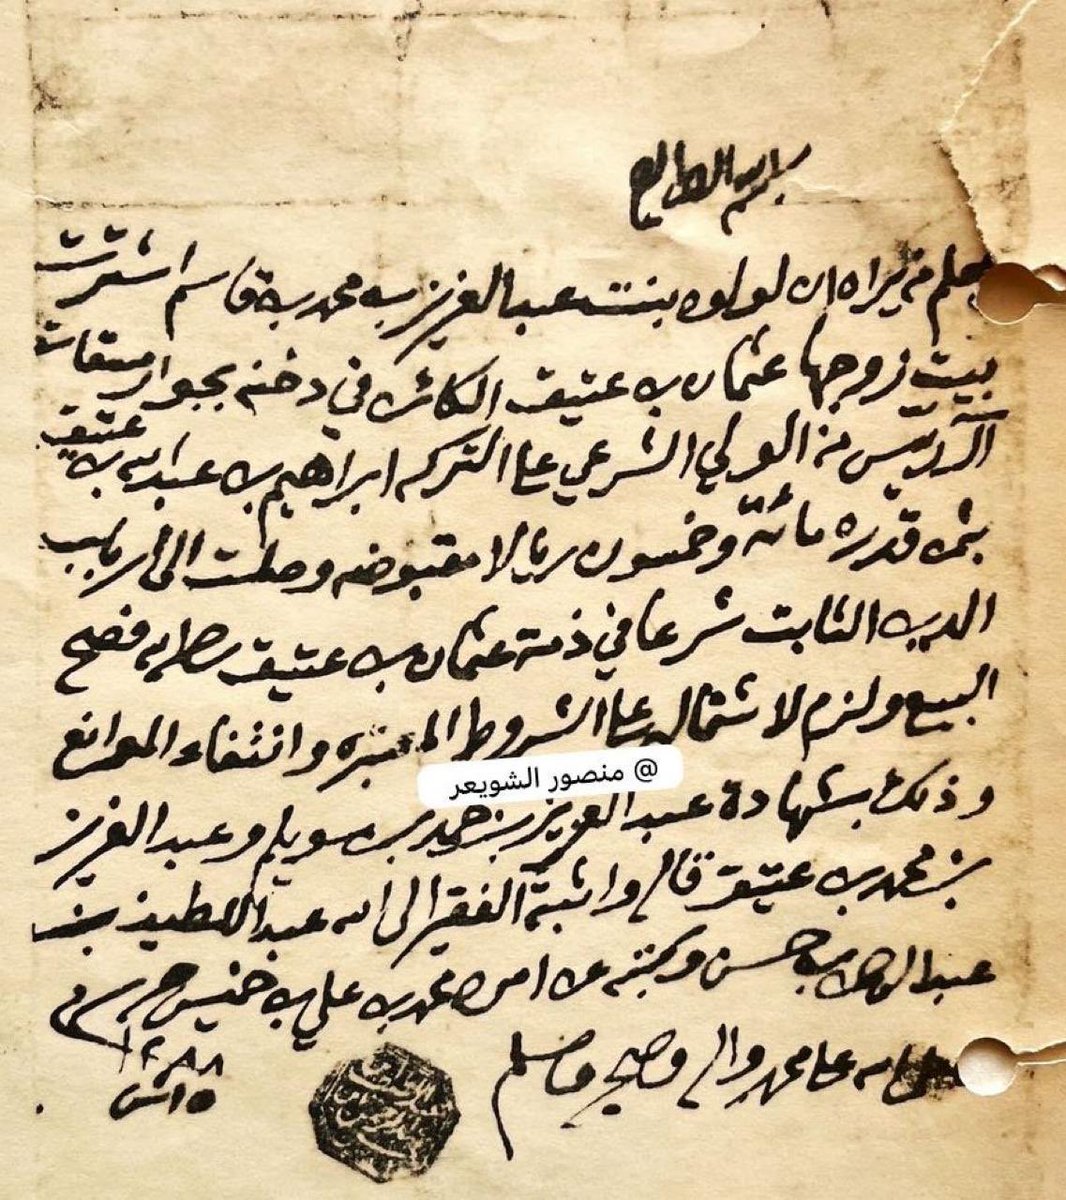 بسم الله الرحمن الرحيم
يعلم من يراه ان لولوه بنت عبدالعزيز بن محمد بن قاسم اشترت
بيت زوجها عثمان بن عتيق الكائن في دخنه بجوار
آل ريس من الولي الشرعي على التركه ابراهيم بن عبدالله بن عتيق
بثمن قدره مائة وخمسون ريالا مقبوضه وصلت الى ارباب
الدين الثابت شرعا في ذمة عثمان بن عتيق فصح
البيع ولزم لاشتماله على الشروط المعتبره وانتفاء الموانع
@ منصور الشويعر
وذلك بشهادة عبدالعزيز بن حمد بن سويلم وعبدالعزيز
بن محمد بن عتيق قاله واثبته الفقير الى الله عبداللطيف بن
عبدالرحمن بن حسن وكتبه عن امره محمد بن علي بن خنيس
الله على محمد واله وصحبه وسلم
١٢٨٨